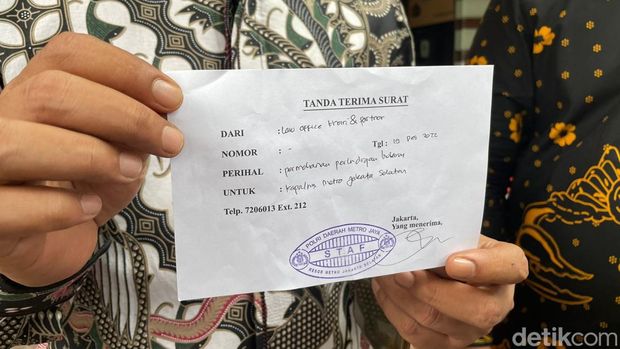 TANDA TERIMA SURAT
DARI : Law Office & partner
NOMOR : - Tgl : 2022
PERIHAL : permohonan perlindungan hukum
UNTUK : Metro Jakarta Selatan
Telp. 7206013 Ext. 212
Jakarta,
Yang menerima,
POLRI DAERAH METRO JAYA
STAF
RESOR METRO JAKARTA SELATAN
detikcom